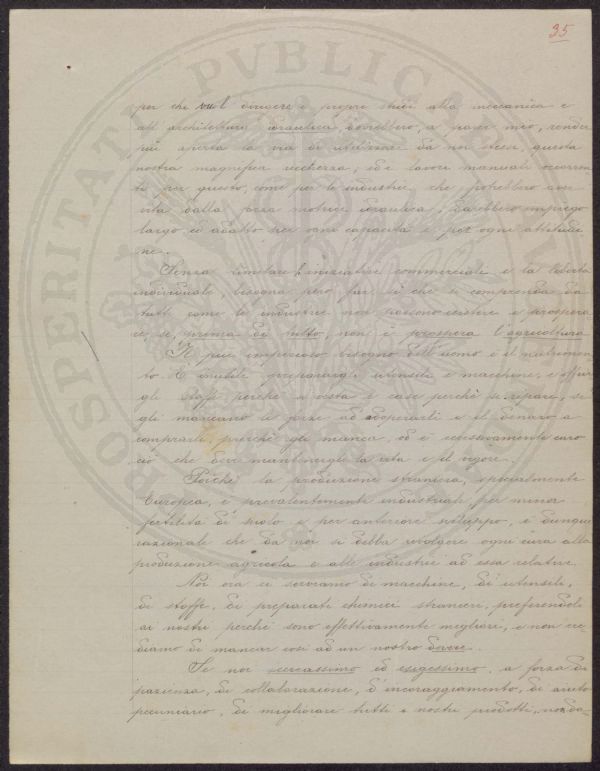 35
per chi vuol dirigere i propri studi alla meccanica e
all'architettura idraulica dovrebbero, a parer mio, render
più aperta la via di utilizzare da noi stessi, questa
nostra magnifica ricchezza, ed i lavori manuali occorren-
ti per questo, come per le industrie, che potrebbero aver
vita dalla forza motrice idraulica, darebbero impiego
largo ed adatto per ogni capacità e per ogni attitudi-
ne.
Senza limitare l'iniziativa commerciale e la libertà
individuale, bisogna però far sì che si comprenda da
tutti come le industrie non possono esistere e prospera-
re se, prima di tutto non è prospera l'agricoltura.
Il più imperioso bisogno dell'uomo è il nutrimen-
to. È inutile preparargli utensili e macchine, e offrir-
gli stoffe perchè si vesta e case perchè si ripari, se
gli mancano le forze ad adoperarli e il denaro a
comprarli, perchè gli manca, od è eccessivamente caro
ciò che deve mantenergli la vita e il vigore.
Poichè la produzione straniera, specialmente
Europea, è prevalentemente industriale per minor
fertilità di suolo e per anteriore sviluppo, è dunque
razionale che da noi si debba rivolgere ogni cura alla
produzione agricola e alle industrie ad essa relative.
Noi ora ci serviamo di macchine, di utensili,
di stoffe, di preparati chimici stranieri, preferendoli
ai nostri perchè sono effettivamente migliori, e non cre-
diamo di mancar così ad un nostro dovere.
Se noi cercassimo ed esigessimo, a forza di
pazienza, di collaborazione, d'incoraggiamento, di aiuto
pecuniario, di migliorare tutti i nostri prodotti, non da-